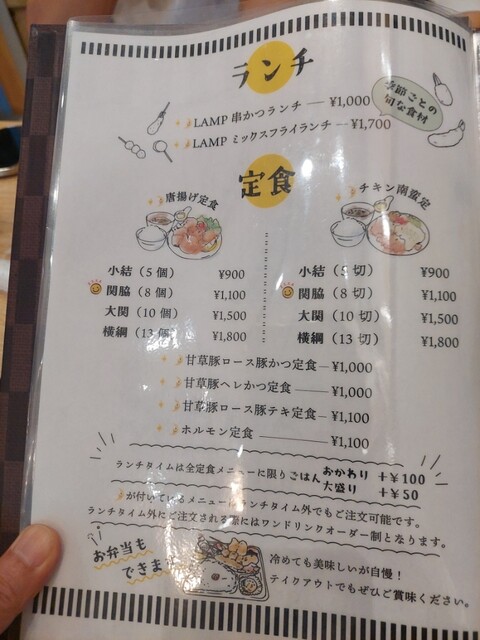 ランチ
LAMP 串かつランチ ― ¥1,000
LAMP ミックスフライランチ ― ¥1,700
季節ごとの
旬な食材
定食
唐揚げ定食
小結（5 個） ¥900
関脇（8 個） ¥1,100
大関（10 個） ¥1,500
横綱（13 個） ¥1,800
チキン南蛮定
小結（5 切） ¥900
関脇（8 切） ¥1,100
大関（10 切） ¥1,500
横綱（13 切） ¥1,800
甘草豚ロース豚かつ定食 ― ¥1,000
甘草豚ヘレかつ定食 ― ¥1,000
甘草豚ロース豚テキ定食 ― ¥1,100
ホルモン定食 ― ¥1,100
ランチタイムは全定食メニューに限りごはん おかわり ＋¥100
大盛り ＋¥50
が付いているメニューはランチタイム外でもご注文可能です。
ランチタイム外にご注文される際にはワンドリンクオーダー制となります。
お弁当も
できます
冷めても美味しいが自慢！
テイクアウトでもぜひご賞味ください。